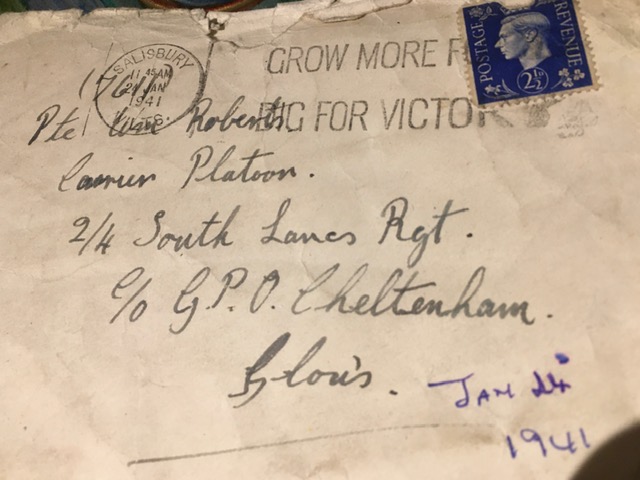 SALISBURY
11 45AM
JAN
1941
WILTS.
GROW MORE F
DIG FOR VICTOR
POSTAGE
REVENUE
2½
Pte Roberts
Carrier Platoon.
2/4 South Lancs Rgt.
c/o G.P.O. Cheltenham.
Glos.
JAN 24
1941